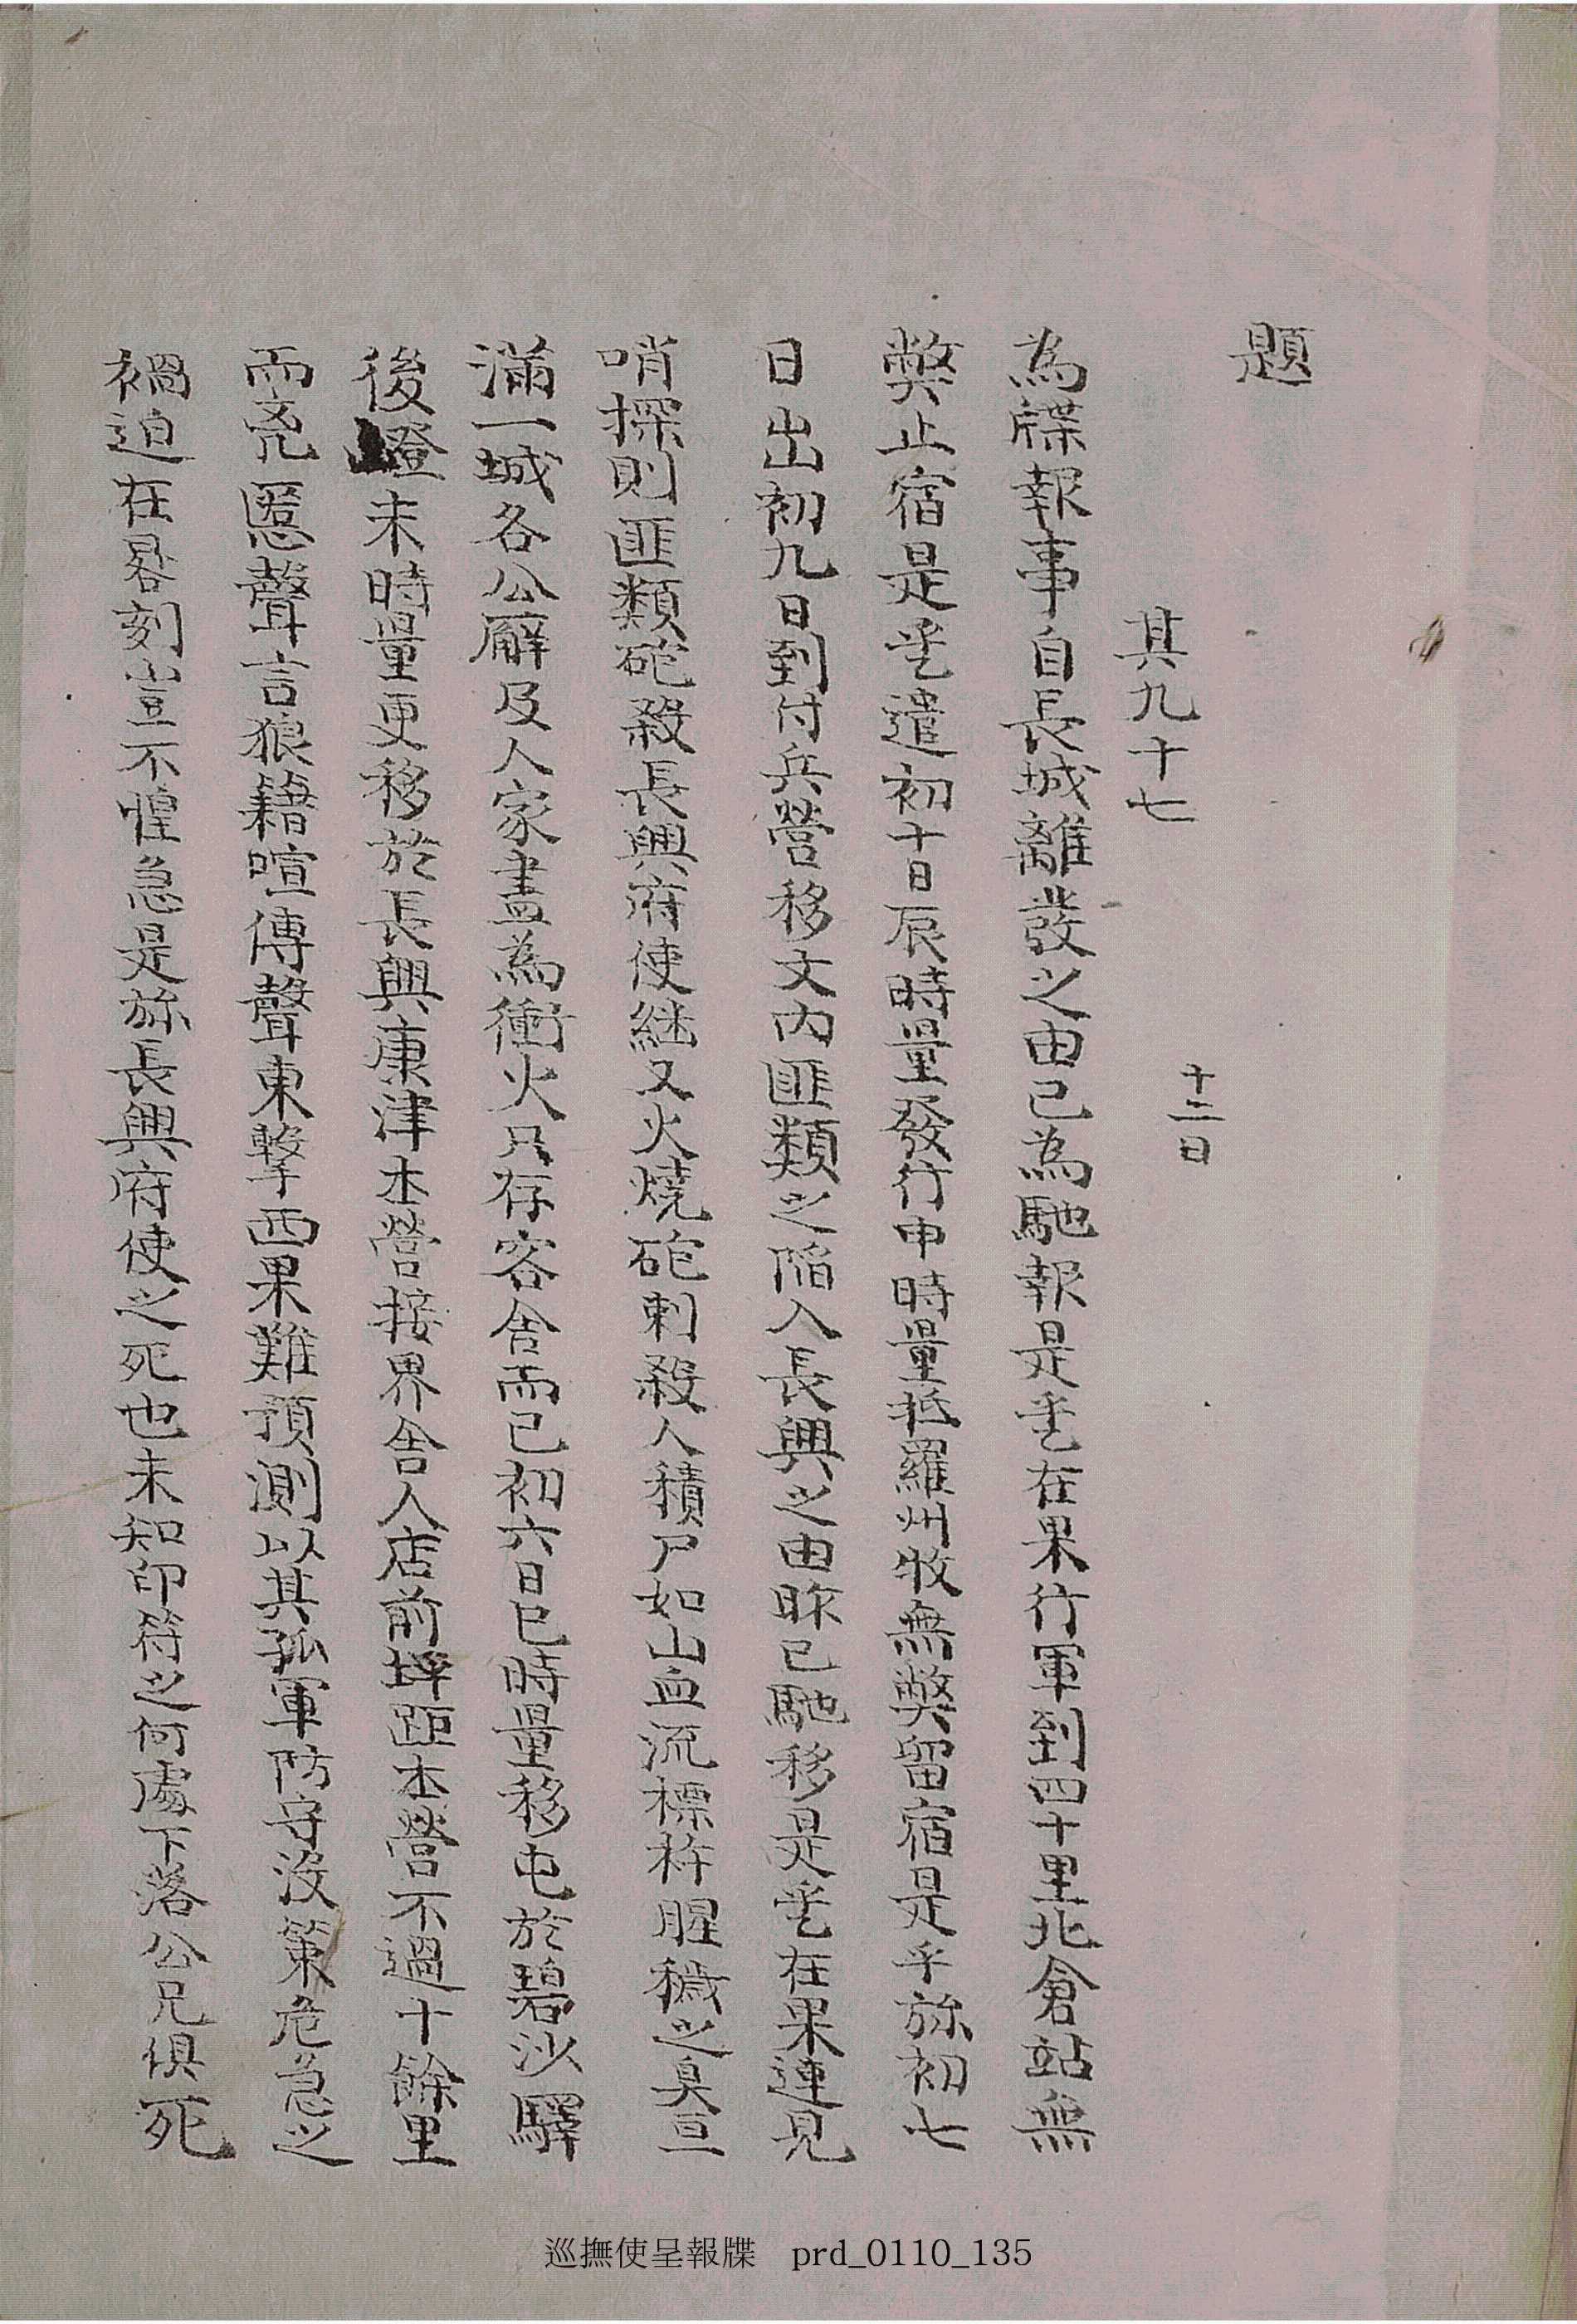 題
其九十七　十二日
為牒報事自長城離發之由已為馳報是乯在果行軍到四十里北倉站無
弊止宿是乯遣初十日辰時量發行申時量抵羅州牧無弊留宿是乎旀初七
日出初九日到付兵營移文內匪類之陷入長興之由昨已馳移是乯在果連見
哨探則匪類砲殺長興府使継又火燒砲刺殺人積尸如山血流標杵腥穢之臭亘
滿一城各公廨及人家盡為衝火只存客舍而已初六日巳時量移屯於碧沙驛
後嶝未時量更移於長興康津本營接界舍人店前坪距本營不過十餘里
而兇慝聲言狼籍喧傳聲東擊西果難預測以其孤軍防守沒策危急之
禍迫在晷刻豈不惶急是旀長興府使之死也未知印符之何處下落公兄俱死
巡撫使呈報牒　prd_0110_135